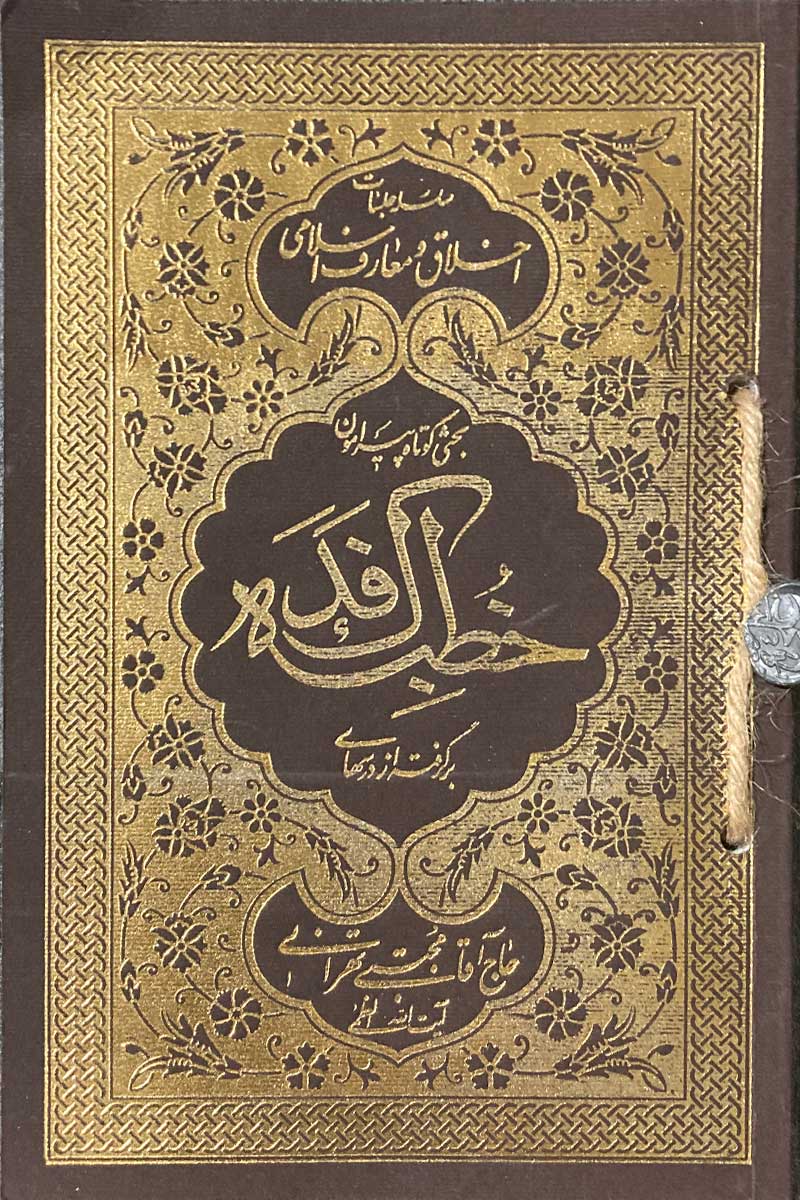 سلسله جلسات
اخلاق و معارف اسلامی
بحثی کوتاه پیرامون
خطبه فدک
برگرفته از درسهای
حاج آقا مجتبی تهرانی
آیت الله العظمی